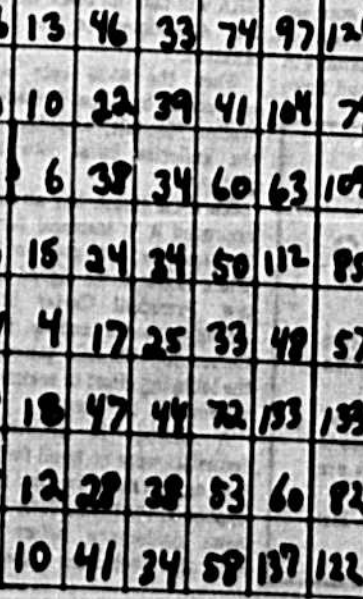 13 46 33 74 97
10 22 39 41 104
6 38 34 60 63
15 24 34 50 112
4 17 25 33 48
18 47 44 72 133
12 28 28 53 60
10 41 34 58 137 122